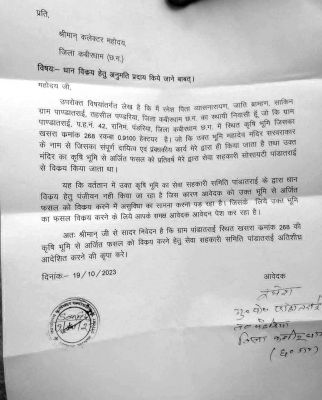 प्रति,
श्रीमान् कलेक्टर महोदय,
जिला कबीरधाम (छ.ग.)
विषयः- धान विक्रय हेतु अनुमति प्रदाय किये जाने बाबद्।
महोदय जी,
उपरोक्त विषयांतर्गत लेख है कि मैं रमेश पिता व्यासनारायण, जाति ब्राम्हण, साकिन
ग्राम पाण्डातराई, तहसील पण्डरिया, जिला कबीरधाम छ.ग. का स्थायी निवासी हूं, जो कि ग्राम
पाण्डातराई, प.ह.नं. 42, रानिमं. पंडरिया, जिला कबीरधाम छ.ग. में स्थित कृषि भूमि जिसका
खसरा क्रमांक 268 रकबा 0.9100 हेक्टेयर है। जो कि उक्त भूमि महादेव मंदिर सरवराकार
के नाम से जिसका संपूर्ण दायित्व एवं प्रंबंधकीय कार्य मेरे द्वारा ही किया जाता है तथा उक्त
मंदिर का कृषि भूमि से अर्जित फसल को प्रतिवर्ष मेरे द्वारा सेवा सहकारी सोसायटी पांडातराई
से विक्रय किया जाता था।
यह कि वर्तमान में उक्त कृषि भूमि का सेवा सहकारी समिति पांडातराई के द्वारा धान
विक्रय हेतु पंजीयन नही किया जा रहा है जिस कारण आवेदक को उक्त भूमि से अर्जित
फसल को विक्रय करने में असुविधा का सामना करना पड़ रहा है। जिसके लिये उक्त भूमि
का फसल विक्रय करने के लिये आपके समक्ष आवेदन आवेदन पेश कर रहा है।
अतः श्रीमान् जी से सादर निवेदन है कि ग्राम पांडातराई स्थित खसरा क्रमांक 268 की
कृषि भूमि से अर्जित फसल को विक्रय करने हेतु सेवा सहकारी समिति पाण्डातराई अतिशीघ्र
आदेशित करने की कृपा करें।
दिनांकः- 19/10/2023
आवेदक
रमेश
जिला कबीरधाम
(छ०ग०)